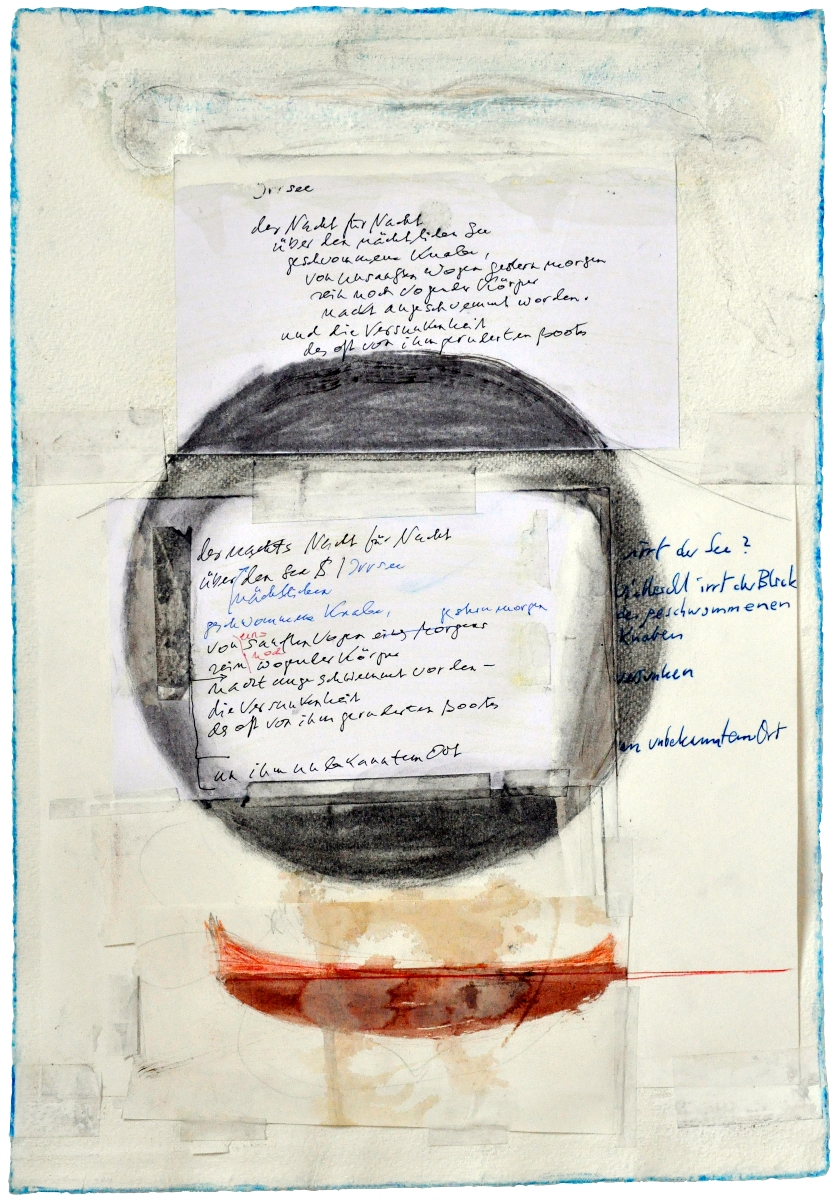 Irrsee
der Nacht für Nacht
über den nächtlichen See
geschwommene Knabe,
von unsanften Wogen gestern morgen
sein noch wogender Körper
nackt angeschwemmt worden.
und die Versunkenheit
des oft von ihm geruderten Boots
der nachts Nacht für Nacht
über den See / Irrsee
nächtlichen
geschwommene Knabe, gestern morgen
von sanften Wogen eines Morgens
noch
sein wogender Körper
nackt angeschwemmt worden –
die Versunkenheit
des oft von ihm geruderten Boots
an ihm unbekanntem Ort
irrt der See ?
vielleicht irrt der Blick
des geschwommenen
Knaben
versunken
an unbekanntem Ort